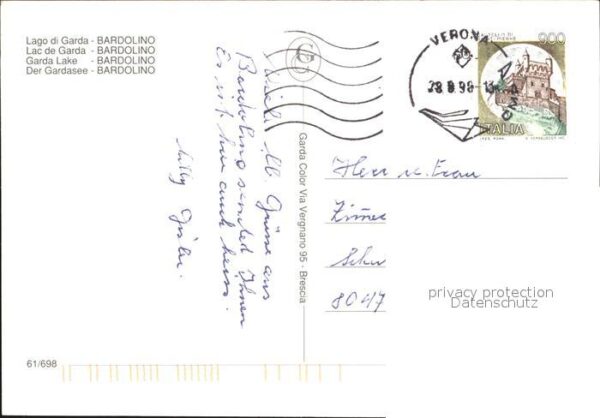 Lago di Garda - BARDOLINO
Lac de Garda - BARDOLINO
Garda Lake - BARDOLINO
Der Gardasee - BARDOLINO
Viele lb Grüße aus
Bardolino sendet Ihnen
Es ist hier auch heiss.
Garda Color Via Vergnano 95 - Brescia
VERONA
28 8 98
900
ITALIA
Herr u. Frau
8047
privacy protection
Datenschutz
61/698